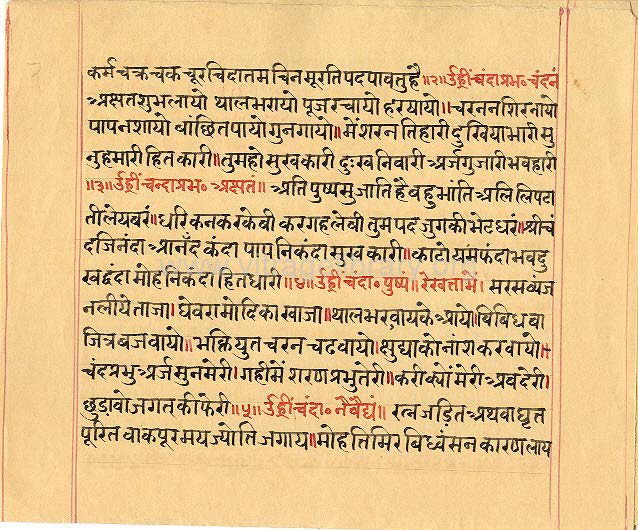 कर्मचक्रचकचूरचिदातमचिनमूरतिपदपावतुहै॥२॥उँह्रींचंदाप्रभ॰चंदनं
अक्षतशुभलायो थालभरायो पूजरचायो हरषायो॥चरननशिरनायो
पापनशायो बांछितपायोगुनगायो॥मेंशरनतिहारीदुखियाभारीसु
नुहमारीहितकारी॥तुमहोसुखकारीदुःखनिवारीअर्जगुजारीभवहारी
॥३॥उँह्रींचन्दाप्रभ॰अक्षतं॥अतिपुष्पसुजातिहैबहुभांतिअलिलिपटा
तीलेयबरं॥धरिकनकरकेबीकरगहलेबीतुमपदजुगकीभेटधरं॥श्रीचं
दजिनंदाआनँदकंदापापनिकंदासुखकारी॥काटोयमफंदाभवदु
खद्वंदामोहनिकंदाहितधारी॥४॥उँह्रींचंदा॰पुष्पं॥रेखतामें।सरसव्यंज
नलीयेताजा॥घेवरामोदिकाखाजा॥थालभरवायकेआयो॥बिबिधबा
जित्रबजवायो॥भक्तियुतचरनचढवायो॥क्षुद्याकोनांशकरवायो॥
चंदप्रभुअर्जसुनमेरी।गहीमेंशरणप्रभुतेरी॥करीक्योंमेरीअवदेरी।
छुडावोजगतकीफेरी॥५॥उँह्रींचंदा॰नैबैद्यं॥ रत्नजडितअथवाघृत
पूरितवाकपूरमयज्योतिजगाय॥मोहतिमिरबिध्वंसनकारणलाय